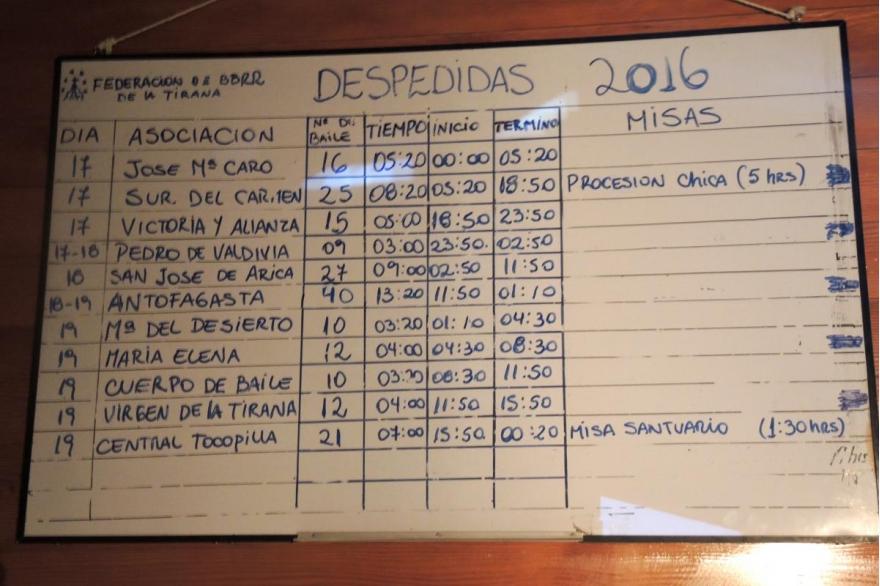 FEDERACION DE BBRR
DE LA TIRANA
DESPEDIDAS 2016
DIA ASOCIACION Nº DE BAILE TIEMPO INICIO TERMINO MISAS
17 JOSE Mª CARO 16 05:20 00:00 05:20
17 SUR. DEL CARMEN 25 08:20 05:20 18:50 PROCESION CHICA (5 hrs)
17 VICTORIA Y ALIANZA 15 05:00 18:50 23:50
17-18 PEDRO DE VALDIVIA 09 03:00 23:50. 02:50
18 SAN JOSE DE ARICA 27 09:00 02:50 11:50
18-19 ANTOFAGASTA 40 13:20 11:50 01:10
19 Mª DEL DESIERTO 10 03:20 01:10 04:30
19 MARIA ELENA 12 04:00 04:30 08:30
19 CUERPO DE BAILE 10 03:20 08:30 11:50
19 VIRGEN DE LA TIRANA 12 04:00 11:50 15:50
19 CENTRAL TOCOPILLA 21 07:00 15:50 00:20 MISA SANTUARIO (1:30 hrs)